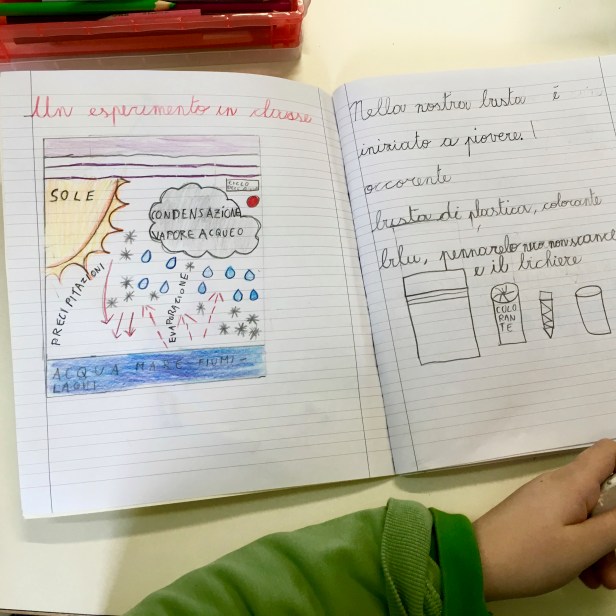 Un esperimento in classe
SOLE
CICLO
CONDENSAZIONE
VAPORE ACQUEO
PRECIPITAZIONI
EVAPORAZIONE
ACQUA MARE FIUMI-
LAGHI
Nella nostra busta è
iniziato a piovere!
occorente
busta di plastica, colorante
blu, pennarelo nero non scance
e il bichiere
COLO
RAN
TE